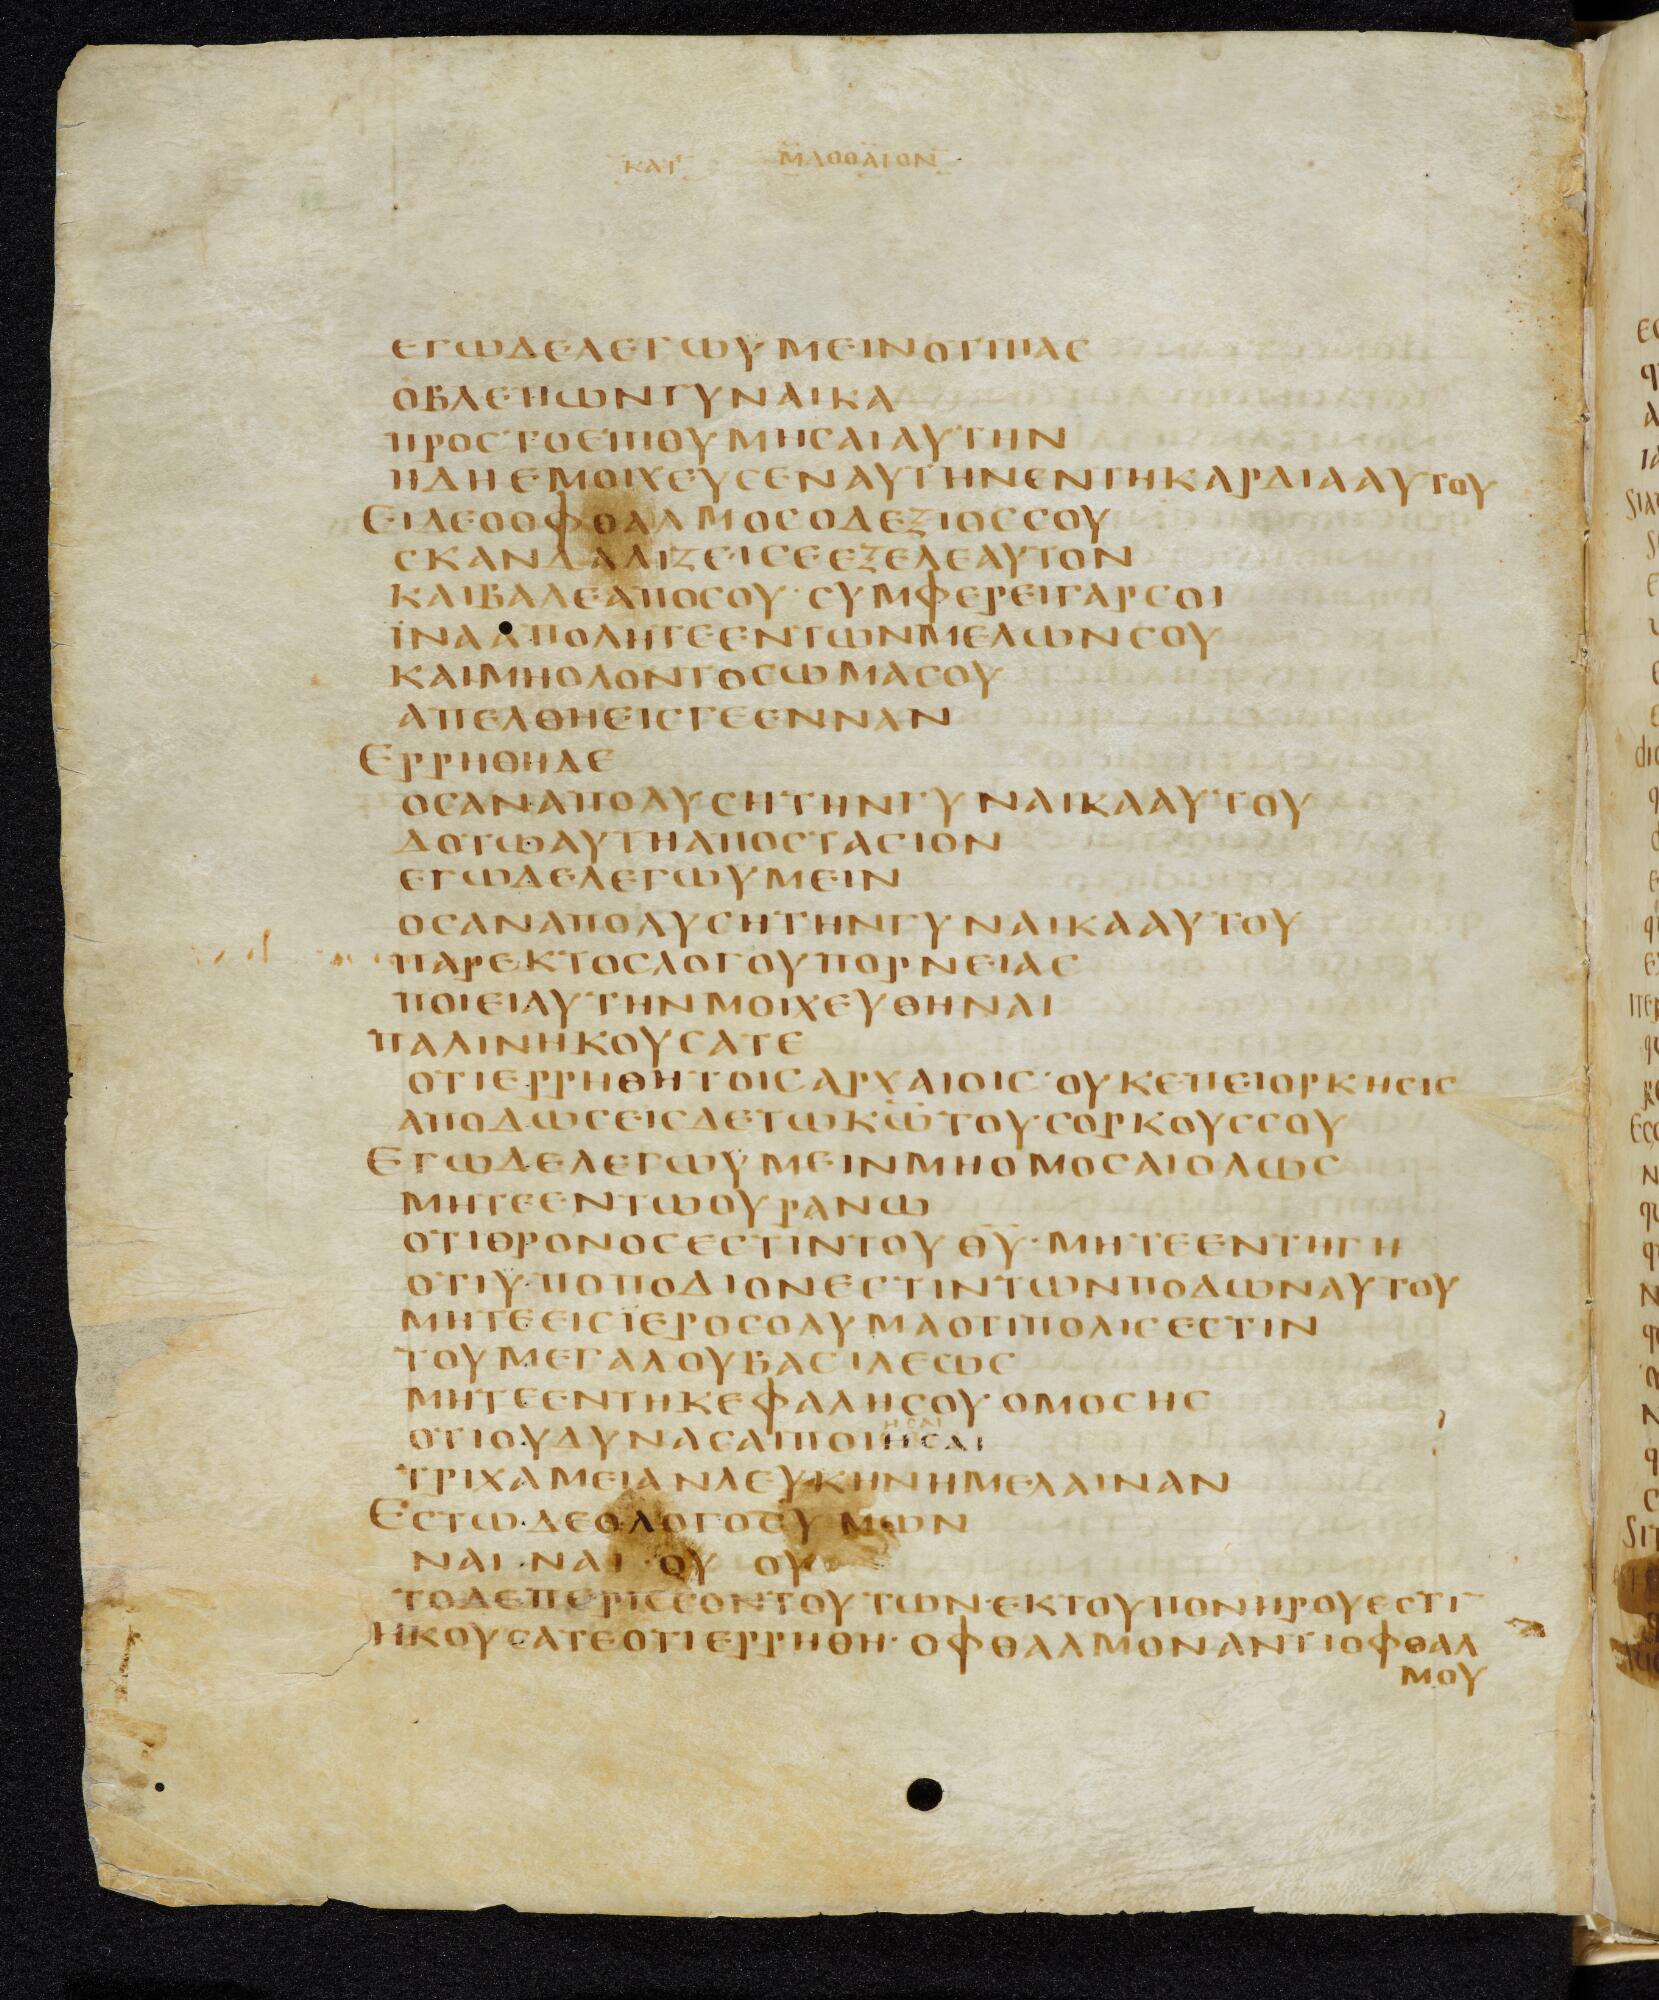 ΚΑΤ ΜΑΘΘΑΙΟΝ
ΕΓΩΔΕΛΕΓΩΥΜΕΙΝΟΤΙΠΑС
ΟΒΛΕΠΩΝΓΥΝΑΙΚΑ
ΠΡΟСΤΟΕΠΙΘΥΜΗСΑΙΑΥΤΗΝ
ΗΔΗΕΜΟΙΧΕΥСΕΝΑΥΤΗΝΕΝΤΗΚΑΡΔΙΑΑΥΤΟΥ
ΕΙΔΕΟΟΦΘΑΛΜΟСΟΔΕΞΙΟССΟΥ
СΚΑΝΔΑΛΙΖΕΙСΕΕΞΕΛΕΑΥΤΟΝ
ΚΑΙΒΑΛΕΑΠΟСΟΥ·СΥΜΦΕΡΕΙΓΑΡСΟΙ
ΪΝΑΑΠΟΛΗΤΕΕΝΤΩΝΜΕΛΩΝСΟΥ
ΚΑΙΜΗΟΛΟΝΤΟСΩΜΑСΟΥ
ΑΠΕΛΘΗΕΙСΓΕΕΝΝΑΝ
ΕΡΡΗΘΗΔΕ
ΟСΑΝΑΠΟΛΥСΗΤΗΝΓΥΝΑΙΚΑΑΥΤΟΥ
ΔΟΤΩΑΥΤΗΑΠΟСΤΑСΙΟΝ
ΕΓΩΔΕΛΕΓΩΥΜΕΙΝ
ΟСΑΝΑΠΟΛΥСΗΤΗΝΓΥΝΑΙΚΑΑΥΤΟΥ
ΠΑΡΕΚΤΟСΛΟΓΟΥΠΟΡΝΕΙΑС
ΠΟΙΕΙΑΥΤΗΝΜΟΙΧΕΥΘΗΝΑΙ
ΠΑΛΙΝΗΚΟΥСΑΤΕ
ΟΤΙΕΡΡΗΘΗΤΟΙСΑΡΧΑΙΟΙС·ΟΥΚΕΠΕΙΟΡΚΗСΙС
ΑΠΟΔΩСΕΙСΔΕΤΩΚΩ̅ΤΟΥСΟΡΚΟΥССΟΥ
ΕΓΩΔΕΛΕΓΩΥΜΕΙΝΜΗΟΜΟСΑΙΟΛΩС
ΜΗΤΕΕΝΤΩΟΥΡΑΝΩ
ΟΤΙΘΡΟΝΟСΕСΤΙΝΤΟΥΘ̅Υ̅·ΜΗΤΕΕΝΤΗΓΗ
ΟΤΙΥΠΟΠΟΔΙΟΝΕСΤΙΝΤΩΝΠΟΔΩΝΑΥΤΟΥ
ΜΗΤΕΕΙСΪΕΡΟСΟΛΥΜΑΟΤΙΠΟΛΙСΕСΤΙΝ
ΤΟΥΜΕΓΑΛΟΥΒΑСΙΛΕΩС
ΜΗΤΕΕΝΤΗΚΕΦΑΛΗСΟΥΟΜΟСΗС
ΗСΑΙ
ΟΤΙΟΥΔΥΝΑСΑΙΠΟΙΗСΑΙ
ΤΡΙΧΑΜΕΙΑΝΛΕΥΚΗΝΗΜΕΛΑΙΝΑΝ
ΕСΤΩΔΕΟΛΟΓΟСΥΜΩΝ
ΝΑΙ·ΝΑΙ·ΟΥ ΟΥ
ΤΟΔΕΠΕΡΙССΟΝΤΟΥΤΩΝ·ΕΚΤΟΥΠΟΝΗΡΟΥΕСΤΙ̅
ΗΚΟΥСΑΤΕΟΤΙΕΡΡΗΘΗ·ΟΦΘΑΛΜΟΝΑΝΤΙΟΦΘΑΛ
ΜΟΥ